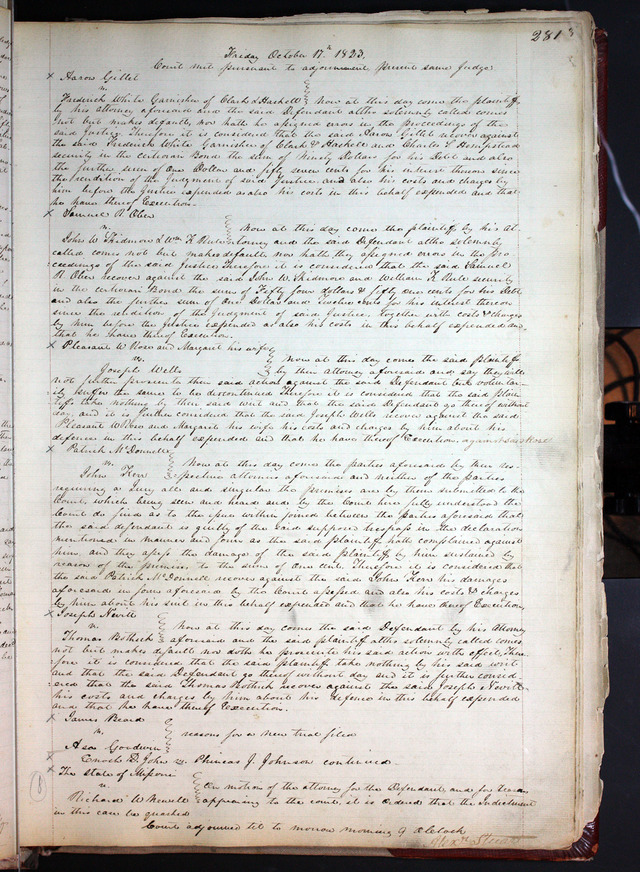 281
Friday October 17th 1823.
Court met pursuant to adjournment present same Judge
x Aaron Gillet
vs.
Frederick White Garnishee of Clark & Haskell Now at this day come the plaintiff
by his attorney aforesaid and the said Defendant altho solemnly called comes
not but makes default, nor hath he assigned errors in the proceedings of the
said Justice. Therefore it is considered that the said Aaron Gillet recover against
the said Frederick White Garnishee of Clark & Haskell and Charles S Hempstead
security in the certiorari Bond the sum of Ninety Dollars for his Debt and also
the further sum of One Dollar and fifty seven cents for his interest thereon since
the rendition of the Judgment of said Justice and also his costs and charges by
him before the Justice expended as also his costs in this behalf expended and that
he have thereof Execution.
x Samuel R. Ober
vs. Now at this day come the plaintiff by his at-
John W Skidmore & Wm K Rule torney and the said Defendant altho solemnly
called comes not but makes default nor hath they assigned errors in the pro-
ceedings of the said Justice Therefore it is considered that the said Samuel
R. Ober recover against the said John W. Skidmore and William K Rule security
in the certiorari Bond the sum of Fifty four dollars & fifty one cents for his Debt
and also the further sum of One Dollar and Twelve Cents for his interest thereon
since the rendition of the Judgment of said Justice. Together with costs & charges
by him before the Justice expended as also his costs in this behalf expended and
that he have thereof Execution.
x Pleasant W Rose and Margaret his wife
vs. Now at this day comes the said plaintiffs
Joseph Wells by their attorney aforesaid and say they will
not further prosecute their said action against the said Defendant but voluntar-
ily suffer the same to be discontinued Therefore it is considered that the said plain-
tiffs take nothing by their said writ and that the said defendant go thereof without
day, and it is further considered that the said Joseph Wells recover against the said
Pleasant W Rose and Margaret his wife his costs and charges by him about his
defence in this behalf expended and that he have thereof Execution. against said Rose
x Patrick McDonnell
vs. Now at this day comes the parties aforesaid by their res-
John Kerr pective attornies aforesaid and neither of the parties
requiring a Jury all and singular the premises are by them submitted to the
Court, which being seen and heard and by the Court here fully understood the
Court do find as to the issue within joined between the parties aforesaid that
the said defendant is guilty of the said supposed trespass in the declaration
mentioned in manner and form as the said plaintiff hath complained against
him, and they assess the damage of the said plaintiff by him sustained by
reason of the premises to the sum of One cent. Therefore it is considered that
the said Patrick McDonnell recover against the said John Kerr his damages
aforesaid in form aforesaid by the Court assessed and also his costs & charges
by him about his suit in this behalf expended and that he have thereof Execution
x Joseph Nevitt
vs. Now at this day comes the said Defendant by his Attorney
Thomas Bothick aforesaid and the said plaintiff altho solemnly called comes
not but makes default nor doth he prosecute his said action with effect, There-
fore it is considered that the said plaintiff take nothing by his said writ
and that the said Defendant go thereof without day and it is further consid-
ered that the said Thomas Bothick recover against the said Joseph Nevitt
his costs and charges by him about his defence in this behalf expended
and that he have thereof Execution.
x James Beard
vs. reasons for a new trial filed
Asa Goodwin
x Enoch D. John vs. Phineas J. Johnson continued
x The State of Missouri
vs. On motion of the attorney for the Defendant, and for reason
Richard W Newell appearing to the court, it is ordered that the Indictment
in this case be quashed
Court adjourned till to morrow morning 9 oClock
Alexr Stuart